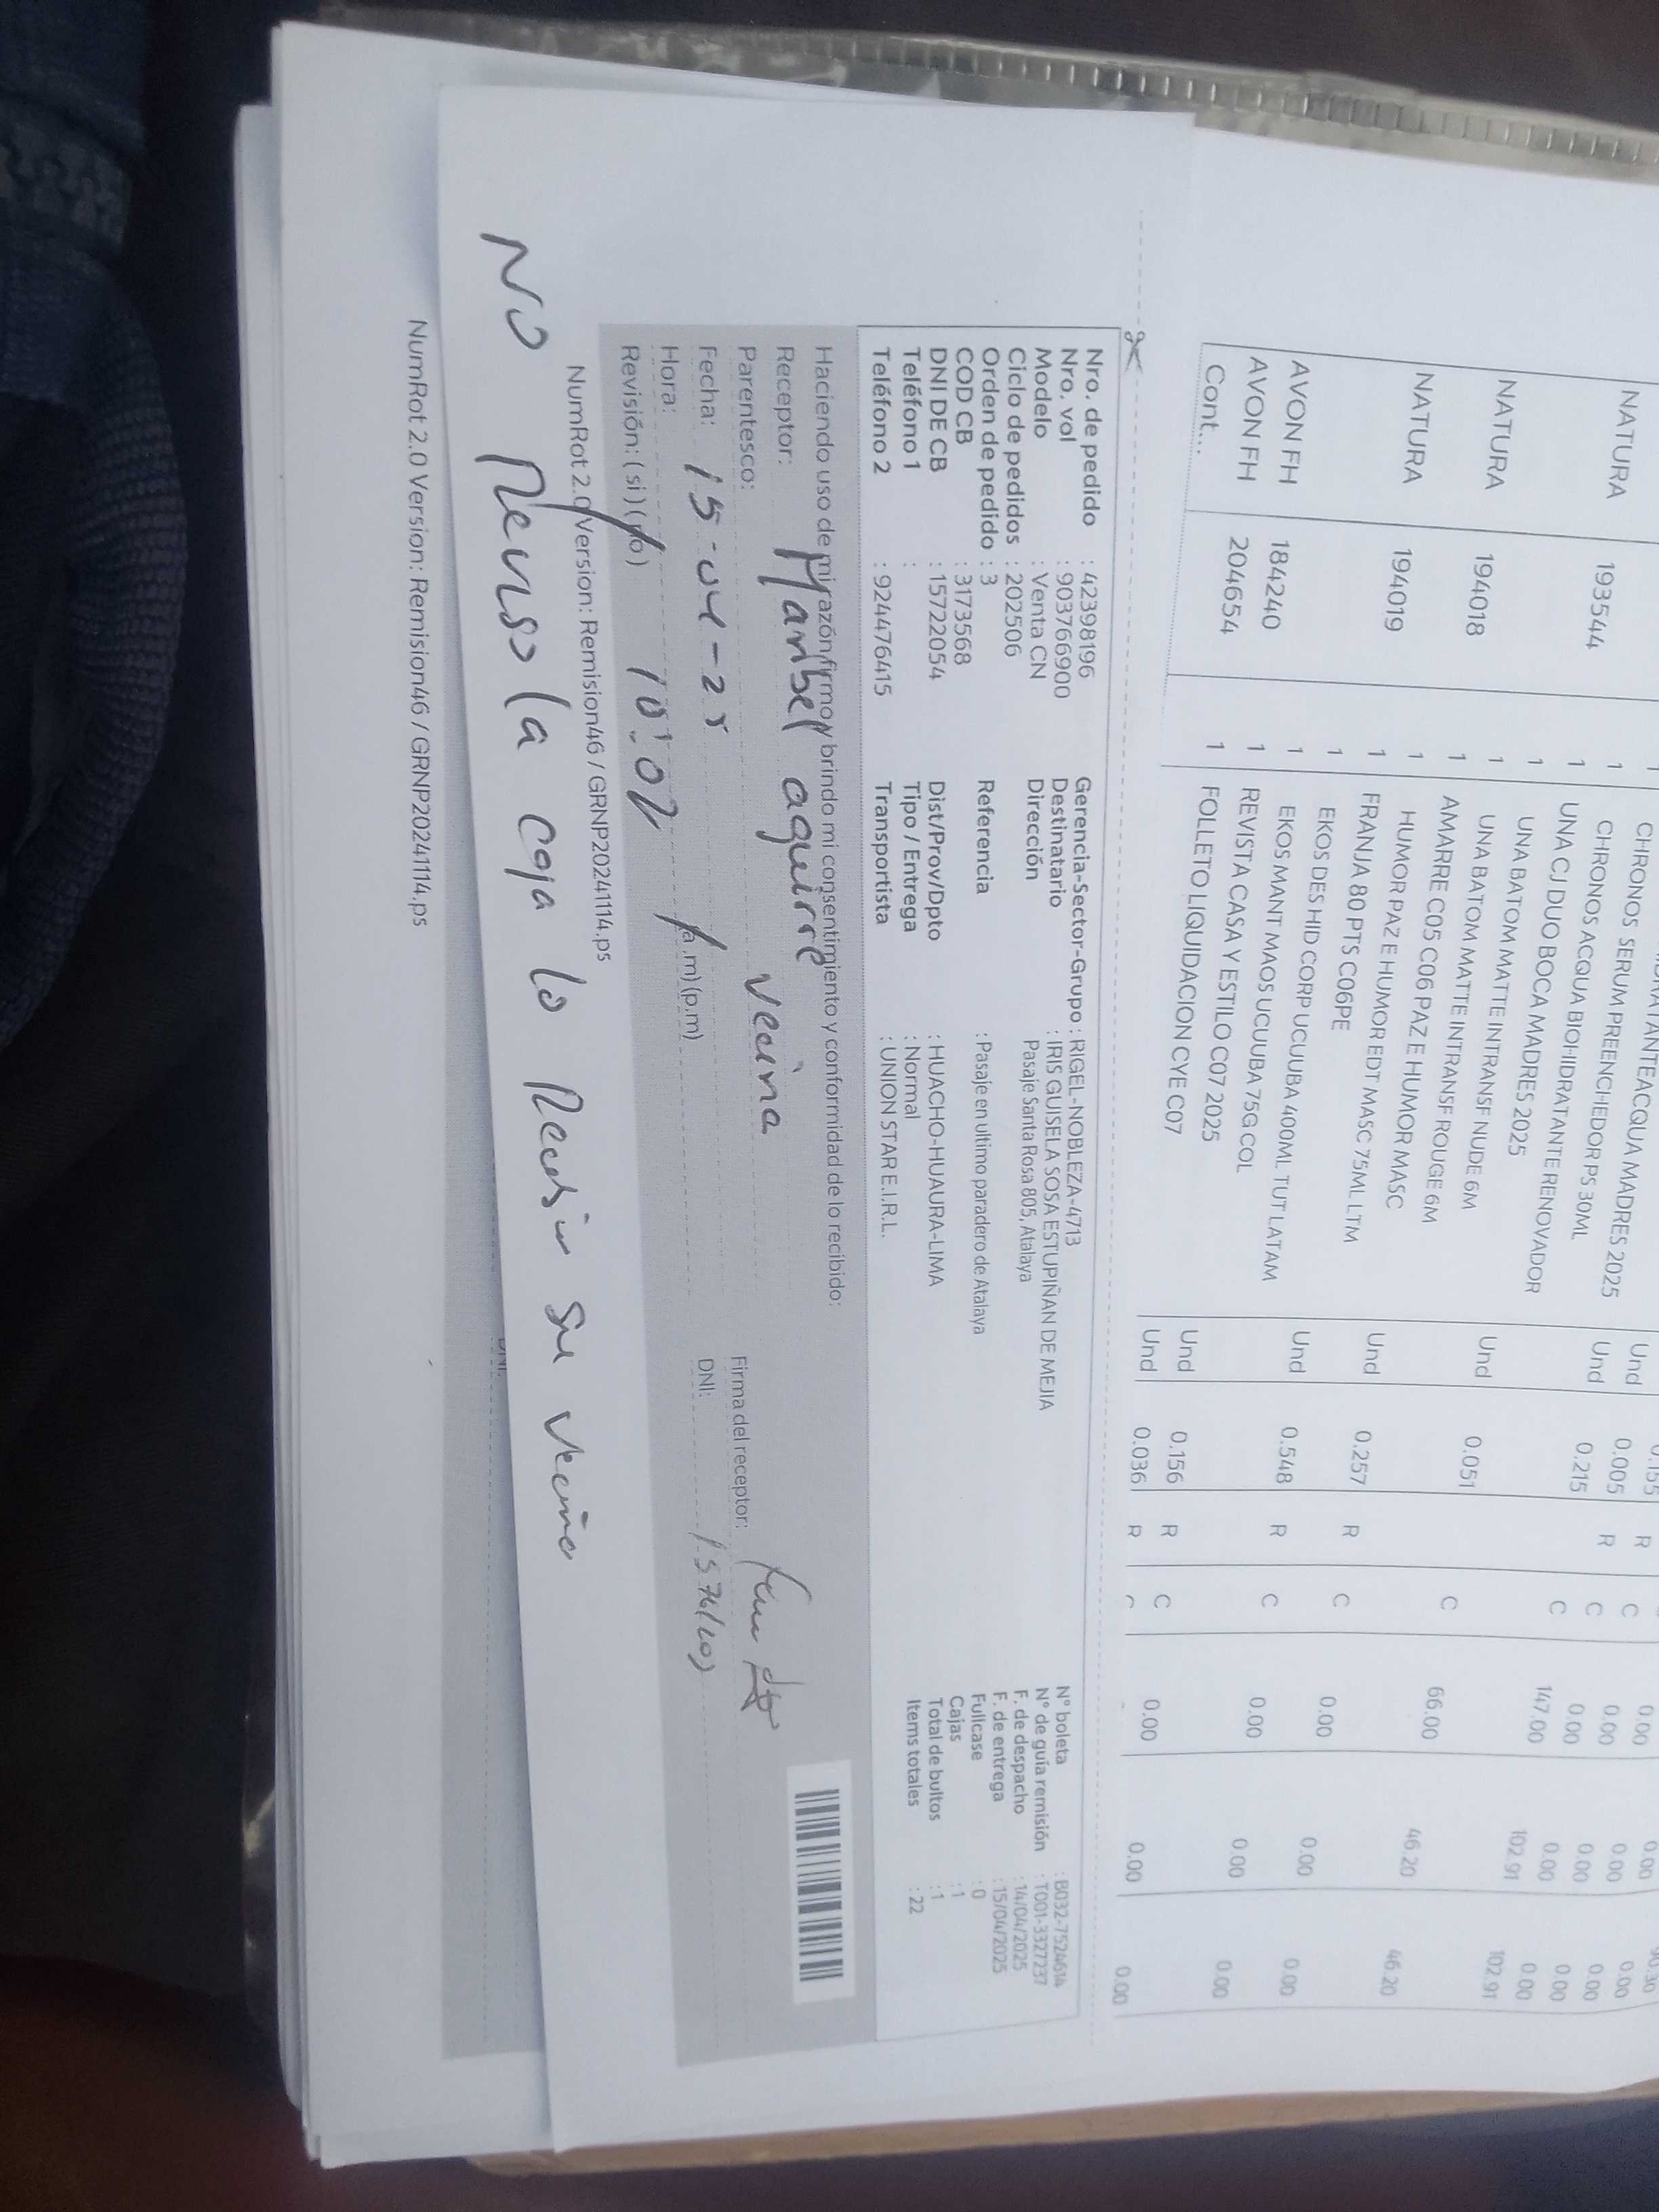 NATURA 193544 1 CHRONOS SERUM PREENCHEDOR PS 30ML Und 0.005 R C 0.00 0.00 0.00
1 CHRONOS ACQUA BIOHIDRATANTE RENOVADOR Und 0.215 R C 0.00 0.00 0.00
1 UNA CJ DUO BOCA MADRES 2025 C 147.00 102.91 102.91
NATURA 194018 1 UNA BATOM MATTE INTRANSF NUDE 6M
1 UNA BATOM MATTE INTRANSF ROUGE 6M Und 0.051
1 AMARRE C05 C06 PAZ E HUMOR MASC C 66.00 46.20 46.20
NATURA 194019 1 HUMOR PAZ E HUMOR EDT MASC 75ML LTM Und 0.257 R C 0.00 0.00 0.00
1 FRANJA 80 PTS C06PE
1 EKOS DES HID CORP UCUUBA 400ML TUT LATAM Und 0.548 R C 0.00 0.00 0.00
1 EKOS MANT MAOS UCUUBA 75G COL
AVON FH 184240 1 REVISTA CASA Y ESTILO C07 2025 Und 0.156 R C 0.00 0.00 0.00
AVON FH 204654 1 FOLLETO LIQUIDACION CYE C07 Und 0.036 R
Cont...
Nro. de pedido : 42398196 Gerencia-Sector-Grupo : RIGEL-NOBLEZA-4713 N° boleta : B032-7524614
Nro. vol : 903766900 Destinatario : IRIS GUISELA SOSA ESTUPIÑAN DE MEJIA N° de guía remisión : T001-3327237
Modelo : Venta CN Dirección Pasaje Santa Rosa 805, Atalaya F. de despacho : 14/04/2025
Ciclo de pedidos : 202506 F. de entrega : 15/04/2025
Orden de pedido : 3 Referencia : Pasaje en ultimo paradero de Atalaya Fullcase : 0
COD CB : 3173568 Cajas : 1
DNI DE CB : 15722054 Dist/Prov/Dpto : HUACHO-HUAURA-LIMA Total de bultos : 1
Teléfono 1 : Tipo / Entrega : Normal Items totales : 22
Teléfono 2 : 924476415 Transportista : UNION STAR E.I.R.L.
Haciendo uso de mi razón firmo y brindo mi consentimiento y conformidad de lo recibido:
Receptor: Maribel aguirre
Parentesco: Vecina Firma del receptor:
Fecha: 15-04-25 DNI:
Hora: 10:02 (a.m) (p.m)
Revisión: (si) (no)
NumRot 2.0 Version: Remision46 / GRNP20241114.ps
NO Reviso la caja lo Recibio su vecina
DNI:
NumRot 2.0 Version: Remision46 / GRNP20241114.ps